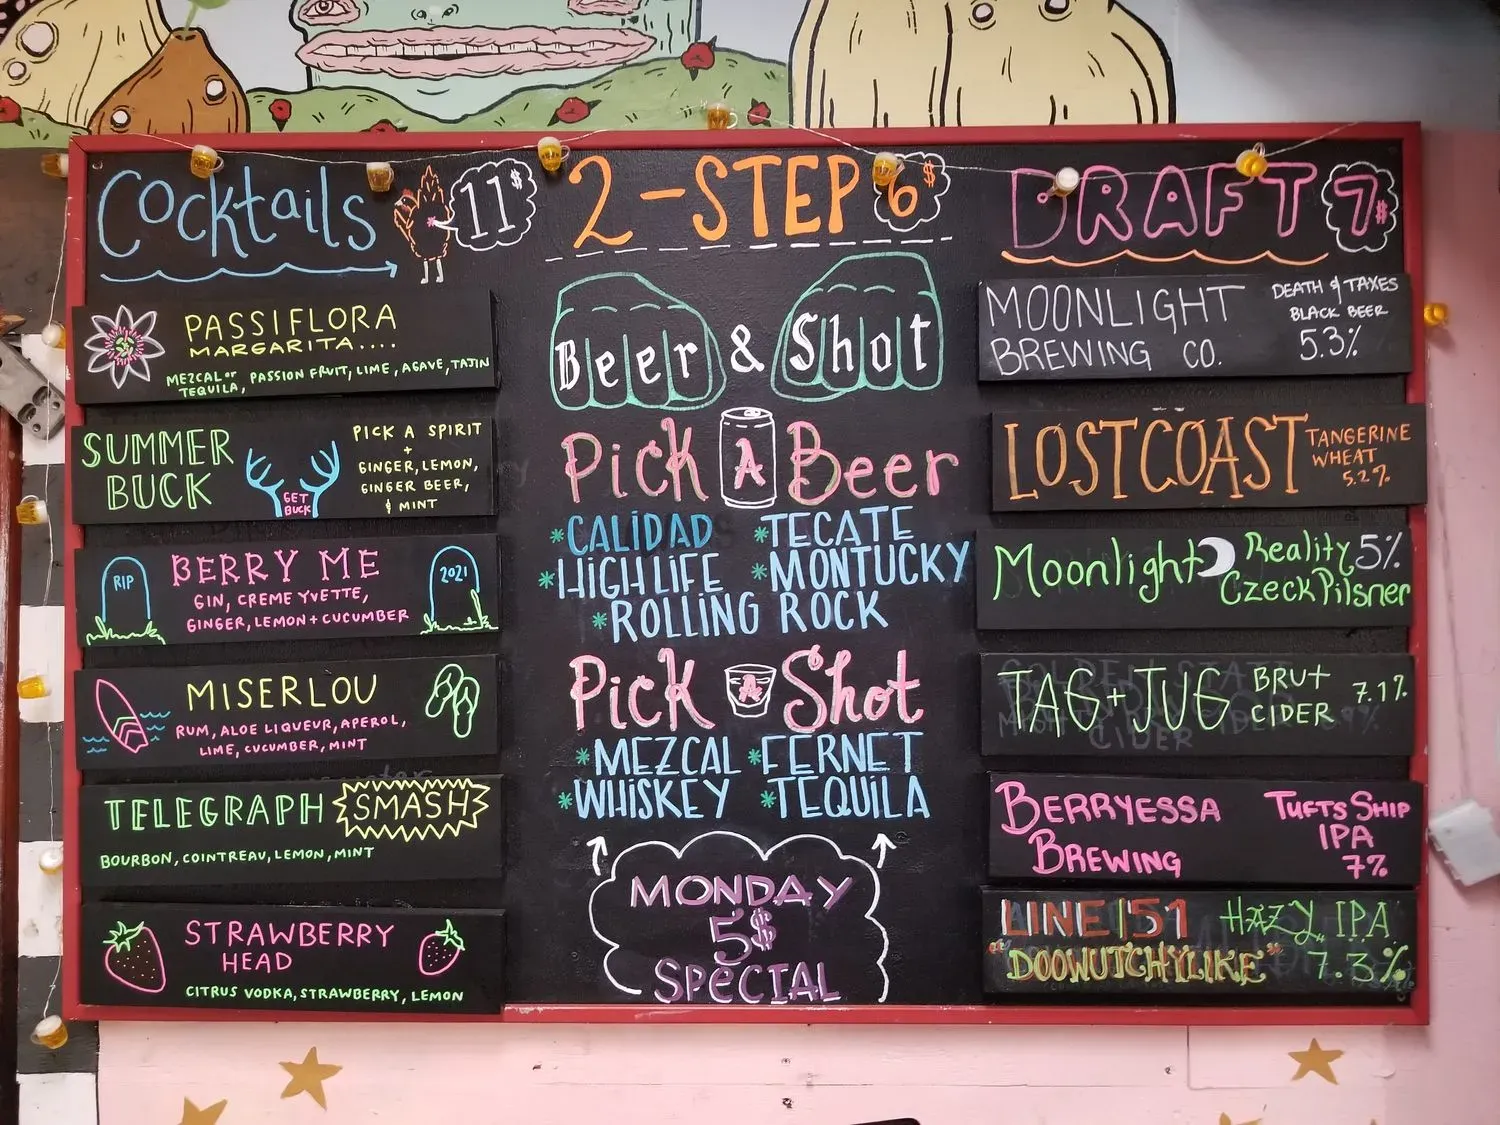 Cocktails 11$
PASSIFLORA
MARGARITA....
MEZCAL or TEQUILA, PASSION FRUIT, LIME, AGAVE, TAJIN
SUMMER
BUCK
GET
BUCK
PICK A SPIRIT
+
GINGER, LEMON,
GINGER BEER,
& MINT
RIP
BERRY ME
GIN, CREME YVETTE,
GINGER, LEMON + CUCUMBER
2021
MISERLOU
RUM, ALOE LIQUEUR, APEROL,
LIME, CUCUMBER, MINT
TELEGRAPH SMASH
BOURBON, COINTREAU, LEMON, MINT
STRAWBERRY
HEAD
CITRUS VODKA, STRAWBERRY, LEMON
2-STEP 6$
Beer & Shot
Pick A Beer
*CALIDAD *TECATE
*HIGH LIFE *MONTUCKY
*ROLLING ROCK
Pick A Shot
*MEZCAL *FERNET
*WHISKEY *TEQUILA
MONDAY
5$
SPECIAL
DRAFT 7$
MOONLIGHT
BREWING CO.
DEATH & TAXES
BLACK BEER
5.3%
LOSTCOAST
TANGERINE
WHEAT
5.2%
Moonlight Reality 5%
Czeck Pilsner
TAG + JUG BRUT
CIDER
7.1%
BERRYESSA
BREWING
TUFTS SHIP
IPA
7%
LINE 51 HAZY IPA
"DOOWUTCHYLIKE" 7.3%